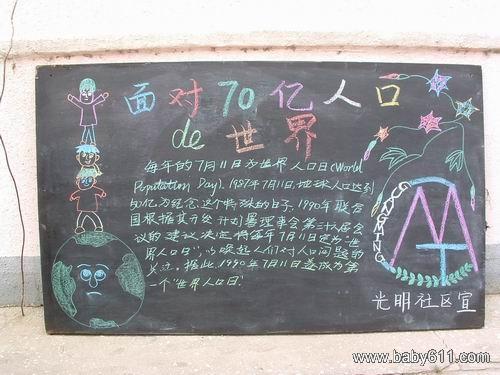 面对70亿人口
de 世界
每年的7月11日为世界人口日(World
Population Day). 1987年7月11日,地球人口达到
50亿.为纪念这个特殊的日子,1990年联合
国根据其开发计划署理事会第三十六届会
议的建议,决定将每年7月11日定为"世
界人口日",以唤起人们对人口问题的
关注.据此,1990年7月11日遂成为第
一个"世界人口日".
GUANGMING
光明社区宣
www.baby611.com